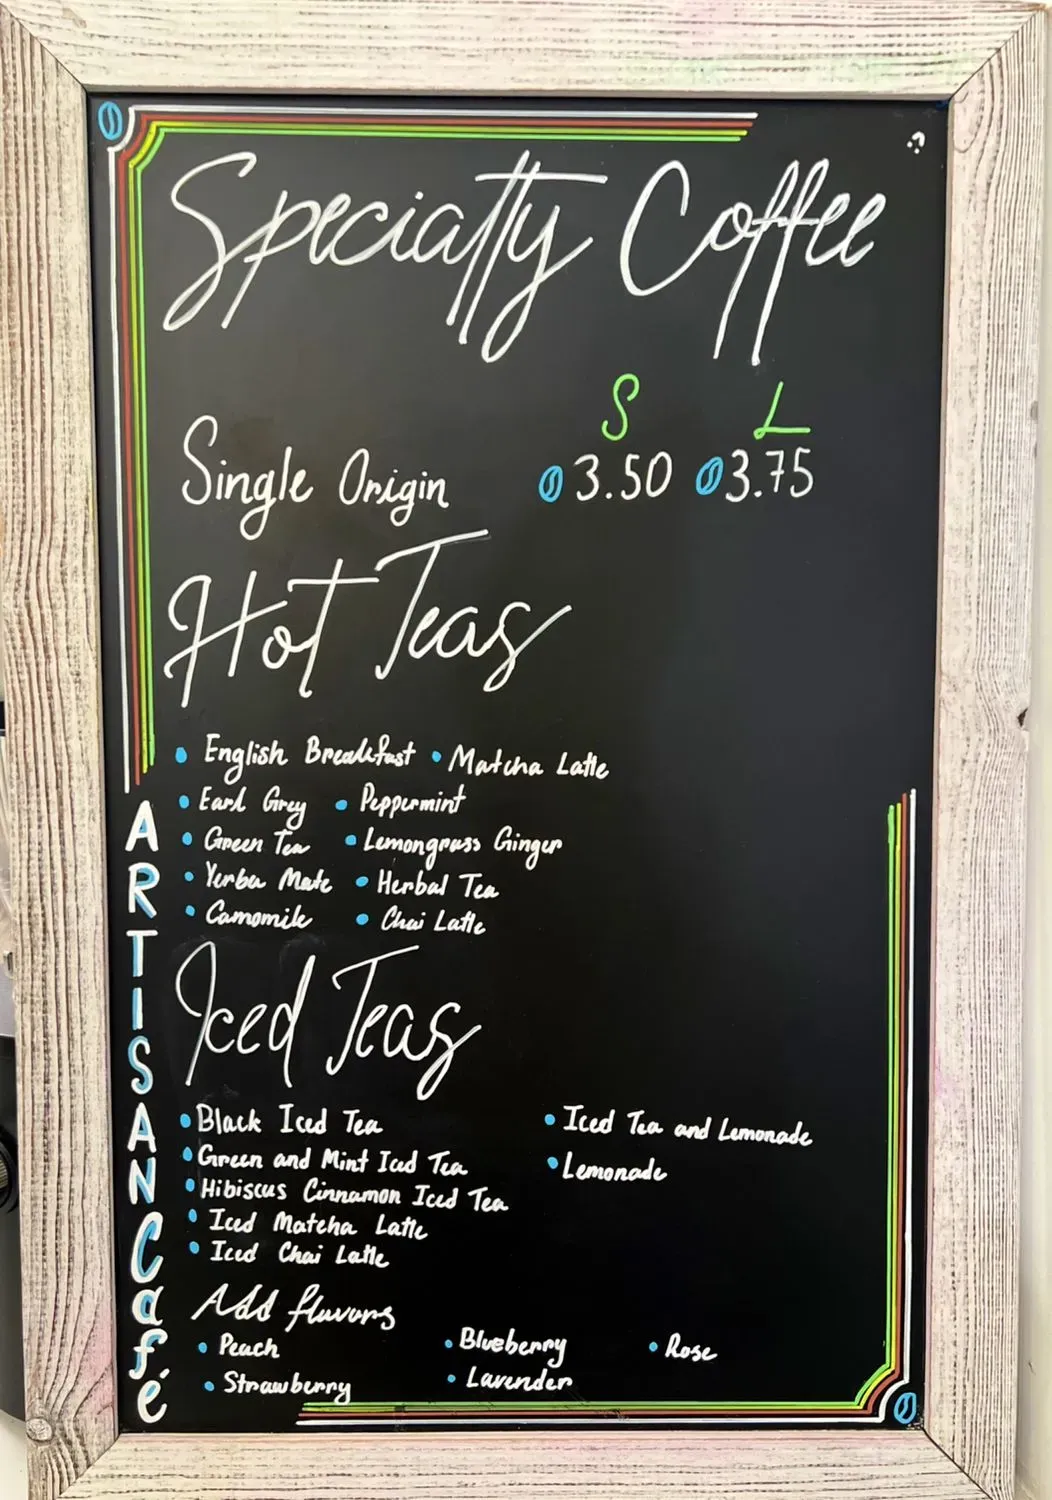 Specialty Coffee
S L
Single Origin 3.50 3.75
Hot Teas
• English Breakfast • Matcha Latte
• Earl Grey • Peppermint
• Green Tea • Lemongrass Ginger
• Yerba Mate • Herbal Tea
• Camomile • Chai Latte
Iced Teas
• Black Iced Tea • Iced Tea and Lemonade
• Green and Mint Iced Tea • Lemonade
• Hibiscus Cinnamon Iced Tea
• Iced Matcha Latte
• Iced Chai Latte
Add flavors
• Peach • Blueberry • Rose
• Strawberry • Lavender
ARTISAN Café